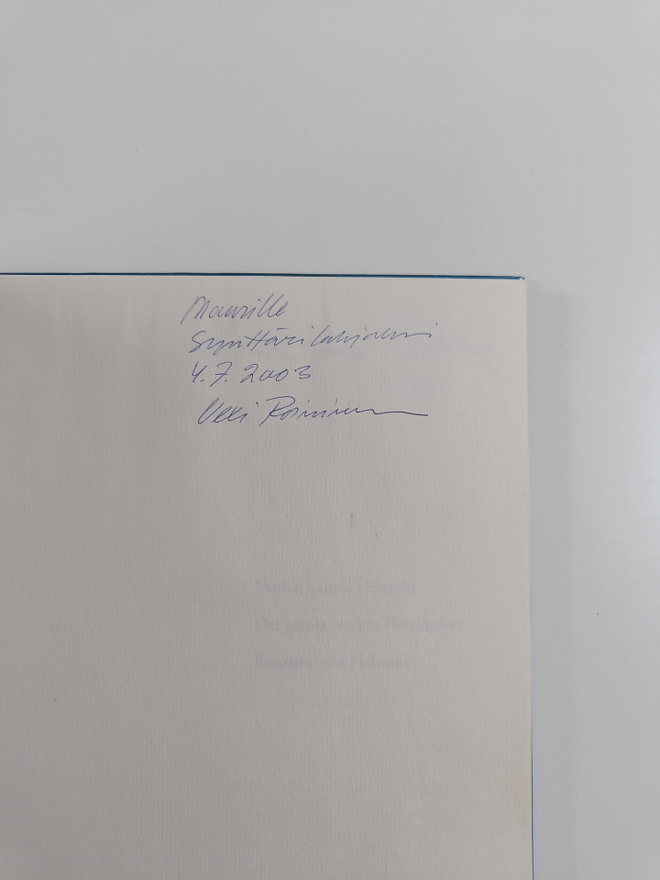 Maurille
Synttärilahjaksi
4.7.2003
Veli Roininen
Vanha, kaunis Helsinki
Det gamla, vackra Helsingfors
Beautiful old Helsinki